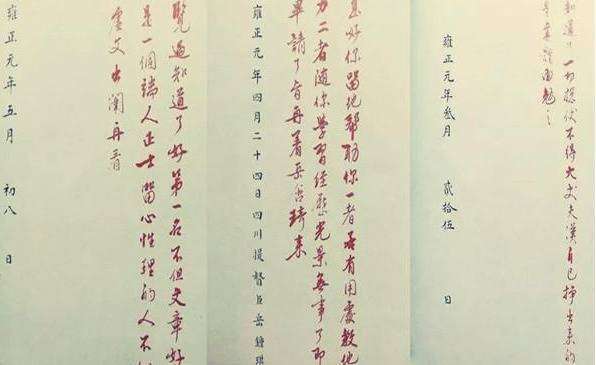 知道了一切 不得大丈夫漢自己掙出來的
勉之
雍正元年叁月 貳拾伍 日
好你留他幫助你一者若有用處教他
力二者隨你學習經歷光景無事了即
請了旨再著岳 琦來
雍正元年四月二十四日四川提督臣岳鍾琪
覽過知道了好第一名不但文章好
是一個端人正士留心性理的人不
虛文
雍正元年五月 初八 日